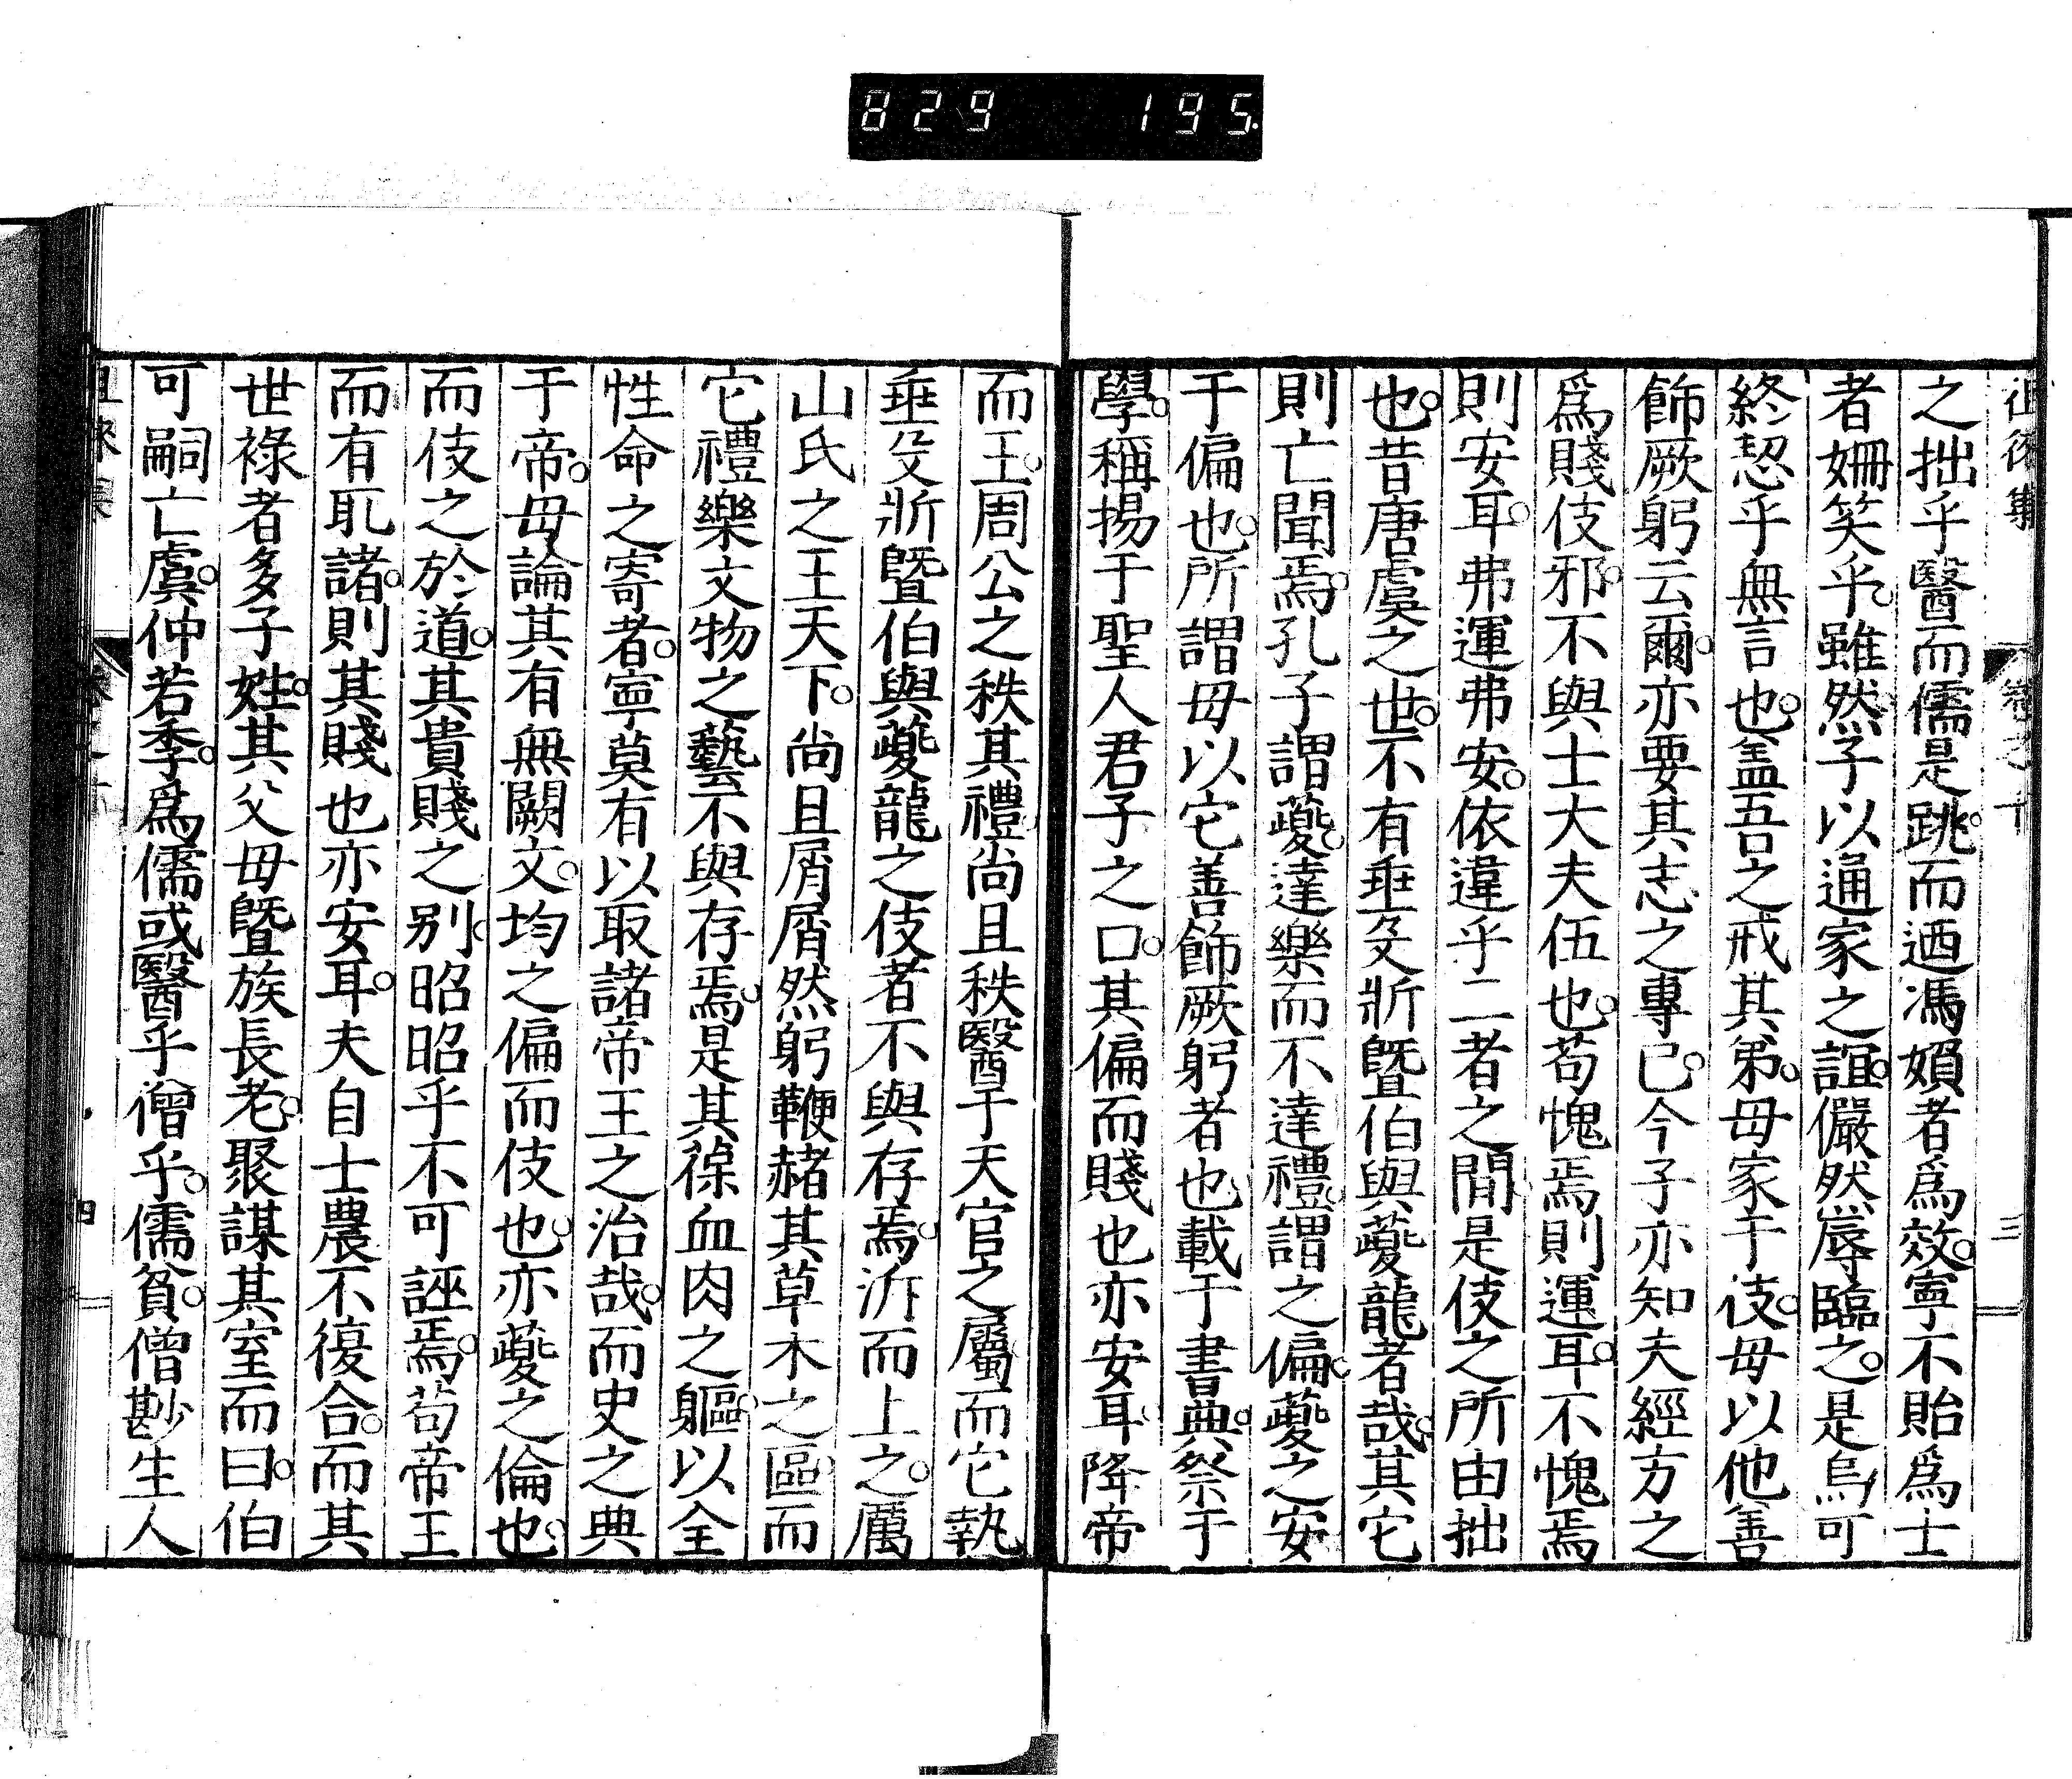 829 195.
之拙乎醫而儒是跳而迺馮嬪者爲效。寧不貽爲士
者姍笑乎。雖然子以通家之誼。儼然辱臨之。是烏可
終恝乎無言也。盖吾之戒其弟。毋家于伎。毋以他善
飾厥躬云爾。亦要其志之專已。今子亦知夫經方之
爲賤伎邪。不與士大夫伍也。苟愧焉則運耳。不愧焉
則安耳。弗運弗安。依違乎二者之間。是伎之所由拙
也。昔唐虞之世。不有垂殳斨暨伯與夔龍者哉。其它
則亡聞焉。孔子謂夔。達樂而不達禮。謂之偏。夔之安
于偏也。所謂毋以它善飾厥躬者也。載于書典。祭于
學。稱揚于聖人君子之口。其偏而賤也亦安耳。降帝
而王。周公之秩其禮。尚且秩醫于天官之屬。而它執
垂殳斨暨伯與夔龍之伎者不與存焉。泝而上之。厲
山氏之王天下。尚且屑屑然躬鞭赭其草木之區。而
它禮樂文物之藝不與存焉。是其葆血肉之軀。以全
性命之寄者。寧莫有以取諸帝王之治哉。而史之典
于帝。毋論其有無闕文。均之偏而伎也。亦夔之倫也。
而伎之於道。其貴賤之別。昭昭乎不可誣焉。苟帝王
而有耴諸。則其賤也亦安耳。夫自士農不復合。而其
世祿者多子姓。其父毋暨族長老。聚謀其室而曰。伯
可嗣亡虞。仲若季。爲儒或醫乎僧乎。儒貧。僧尠生人
三
四